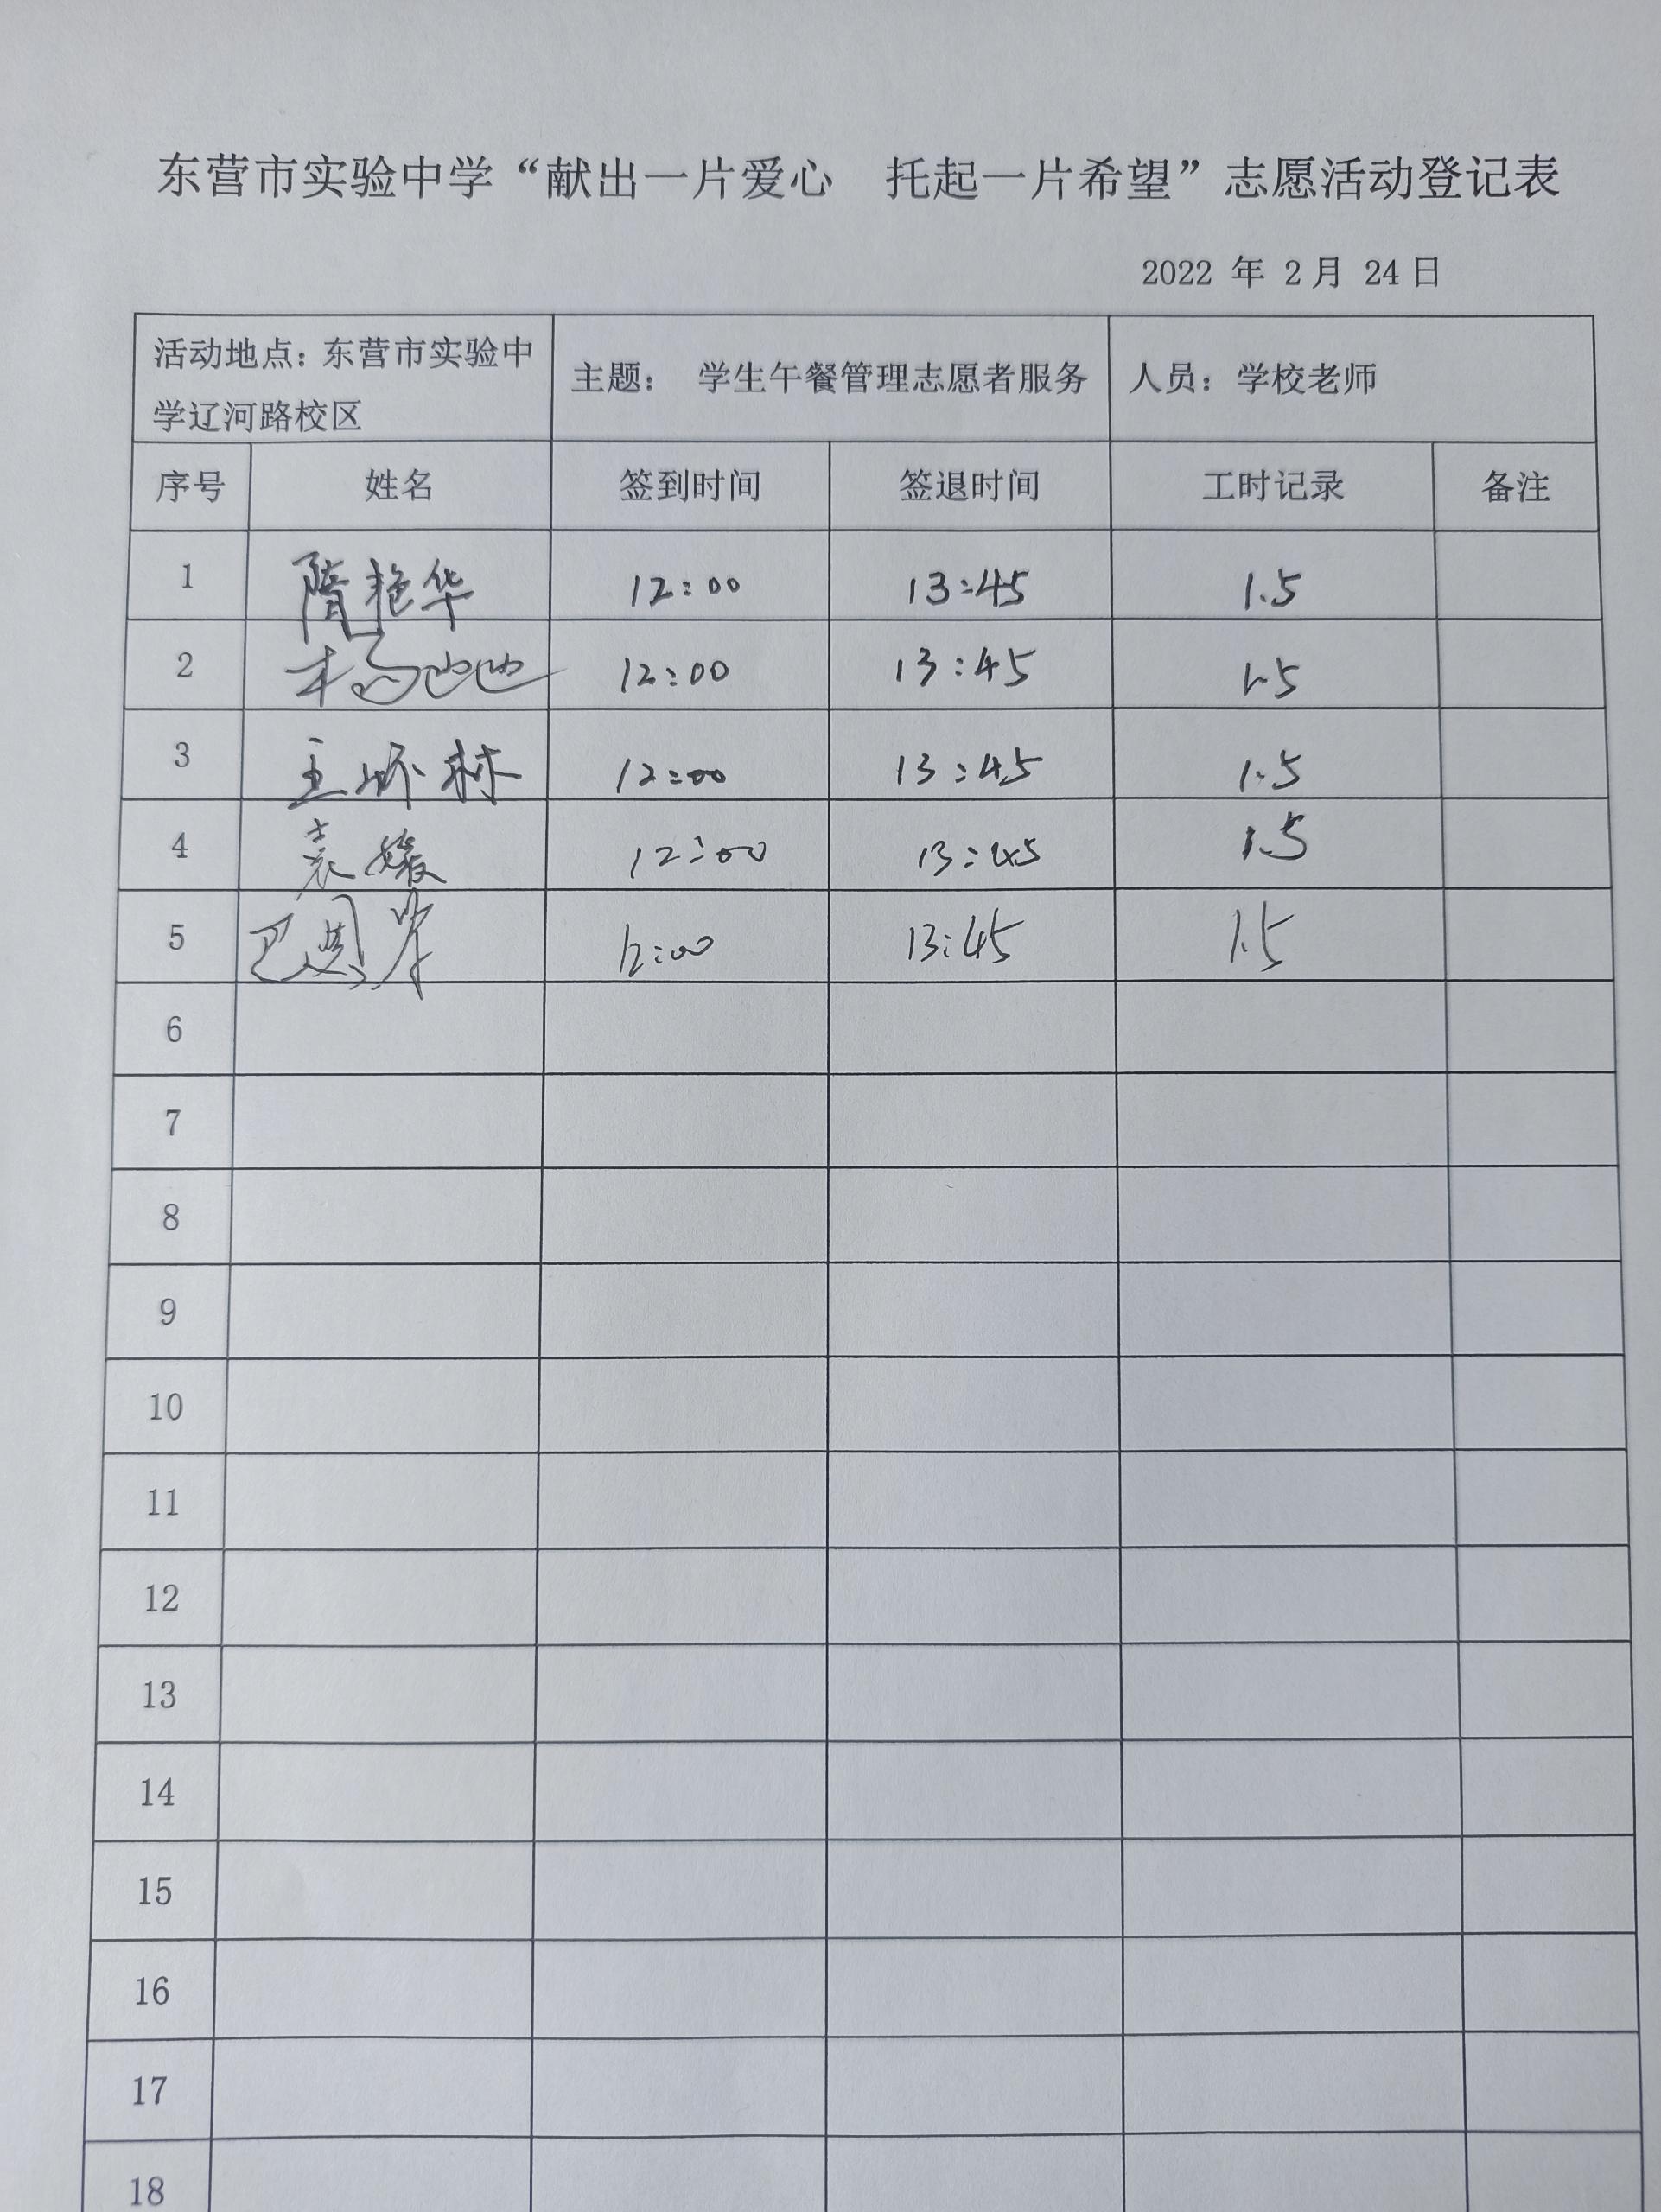 东营市实验中学“献出一片爱心 托起一片希望”志愿活动登记表
2022 年 2月 24日
活动地点：东营市实验中
学辽河路校区
主题： 学生午餐管理志愿者服务
人员：学校老师
序号 姓名 签到时间 签退时间 工时记录 备注
1 隋艳华 12:00 13:45 1.5
2 12:00 13:45 1.5
3 林 12:00 13:45 1.5
4 袁媛 12:00 13:45 1.5
5 巴 12:00 13:45 1.5
6
7
8
9
10
11
12
13
14
15
16
17
18